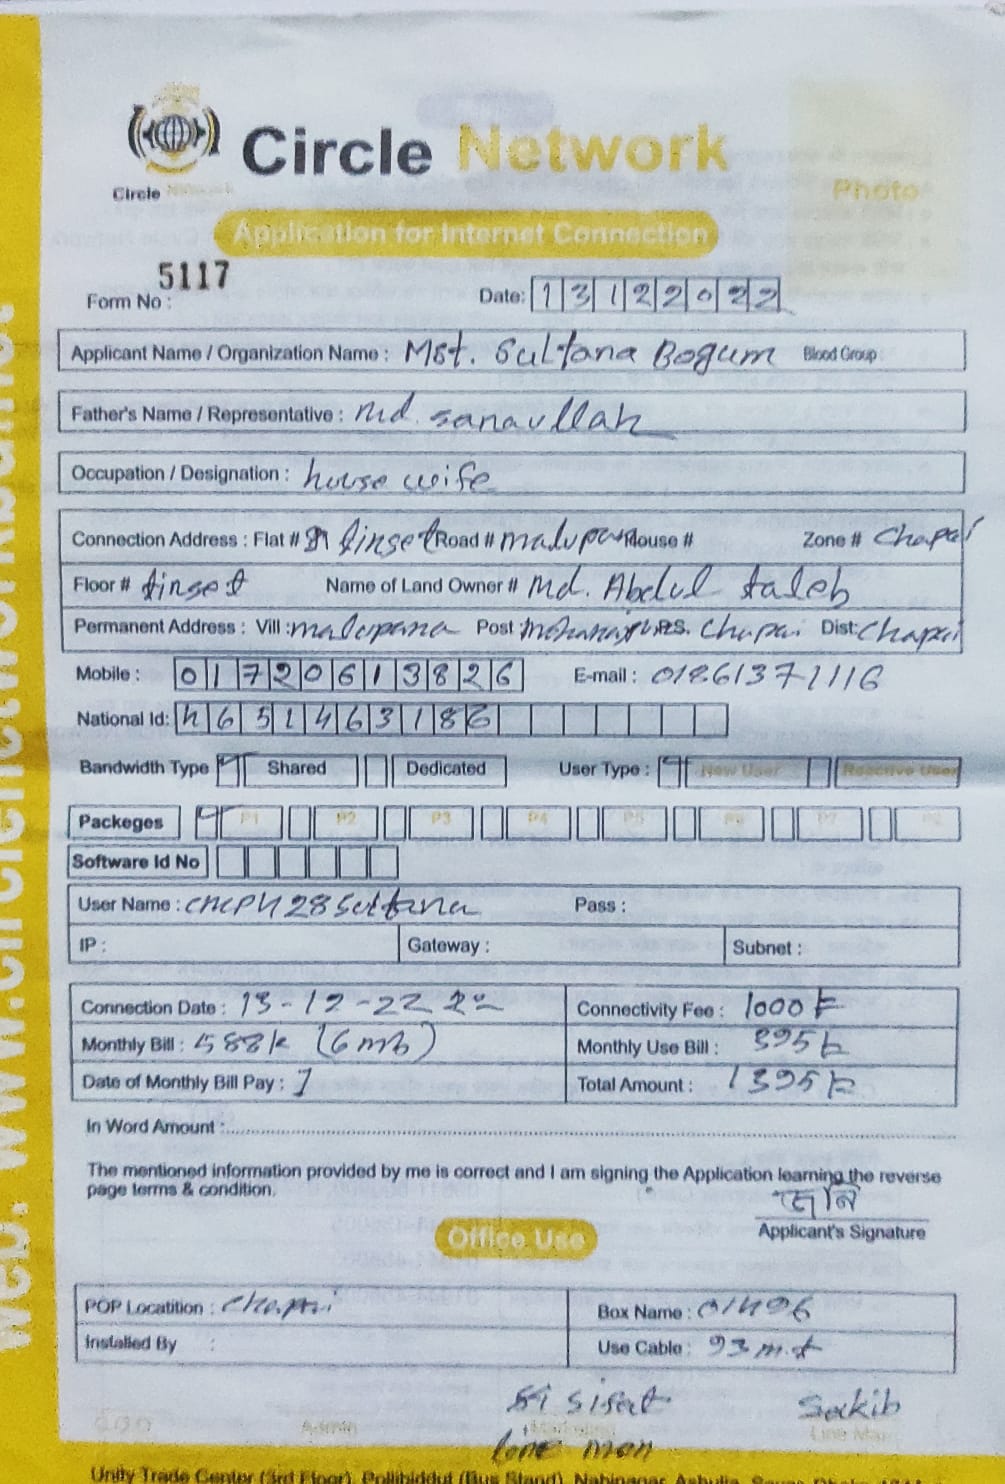 Circle Network
Circle Network
Photo
Application for Internet Connection
5117
Form No :
Date: 13122022
Applicant Name / Organization Name : Mst. Sultana Begum Blood Group :
Father's Name / Representative : md. sanaullah
Occupation / Designation : house wife
Connection Address : Flat # tinset Road # House # Zone # Chapai
Floor # tinset Name of Land Owner # Md. Abdul taleb
Permanent Address : Vill : Post : P.S. Chapai Dist: Chapai
Mobile : 01720613826 E-mail : 01861371116
National Id: 4651463186
Bandwidth Type Shared Dedicated User Type : New User Reactive User
Packeges P1 P2 P3 P4 P5 P6 P7 P8
Software Id No
User Name : Pass :
IP : Gateway : Subnet :
Connection Date : 13-12-22 Connectivity Fee : 1000
Monthly Bill : (6 mb) Monthly Use Bill : 395
Date of Monthly Bill Pay : 1 Total Amount : 1395
In Word Amount :
The mentioned information provided by me is correct and I am signing the Application learning the reverse
page terms & condition.
Applicant's Signature
Office Use
POP Locatition : Chapai Box Name :
Installed By : Use Cable : 93 m.t
Sifat Sakib
Admin Marketing Line Man
line man
Unity Trade Center (3rd Floor), Pollibiddut (Bus Stand), Nabinagar, Ashulia, Savar, Dhaka
web: www.circlenetworkbd.net